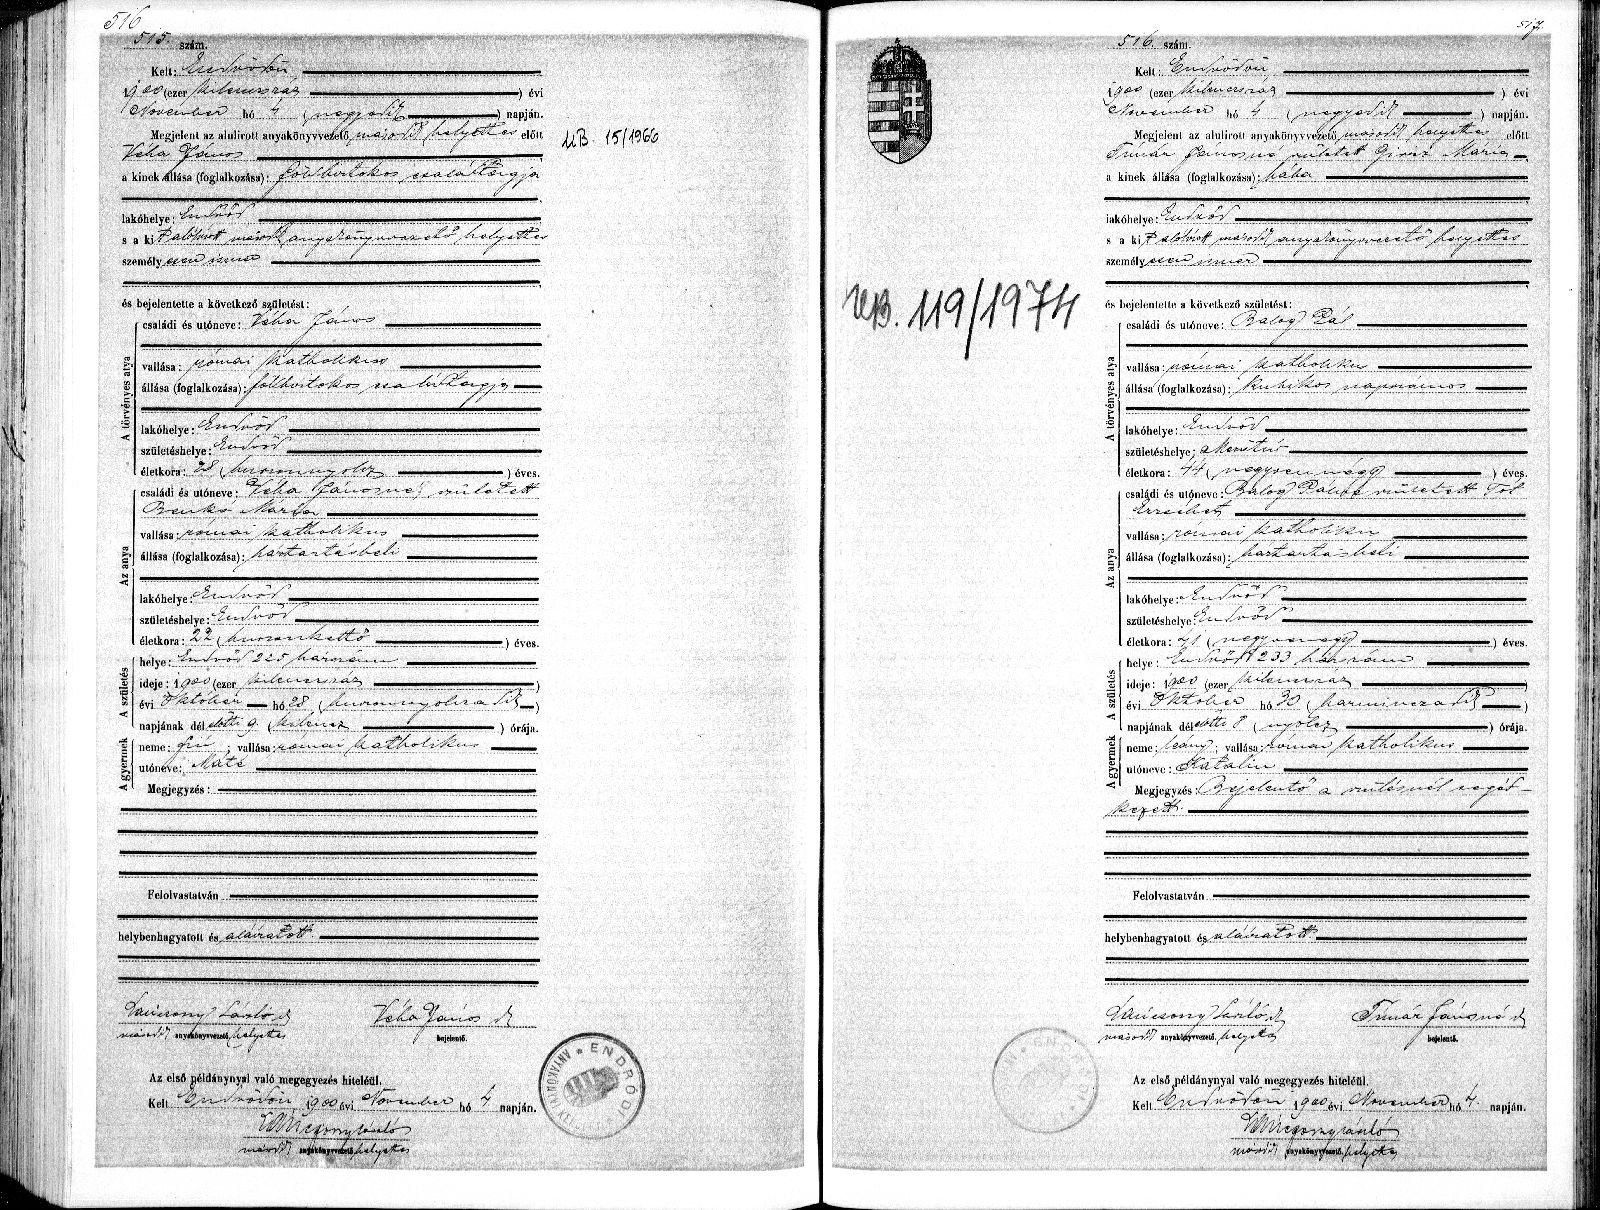 516
515. szám.
Kelt: Endrődön
1900 (ezer kilencszáz ) évi
November hó 4 ( negyedik ) napján.
Megjelent az alulirott anyakönyvvezető második helyettes előtt
Véha János
a kinek állása (foglalkozása): földbirtokos családtagja
lakóhelye: Endrőd
s a kit alólirott második anyakönyvvezető helyettes
személyesen ismer
és bejelentette a következő születést:
A törvényes atya
családi és utóneve: Véha János
vallása: római katholikus
állása (foglalkozása): földbirtokos családtagja
lakóhelye: Endrőd
születéshelye: Endrőd
életkora: 28 ( huszonnyolcz ) éves.
Az anya
családi és utóneve: Véha Jánosné született
Benkó Mária
vallása: római katholikus
állása (foglalkozása): háztartásbeli
lakóhelye: Endrőd
születéshelye: Endrőd
életkora: 22 ( huszonkettő ) éves.
A születés
helye: Endrőd 225 házszám
ideje: 1900 (ezer kilencszáz )
évi Október hó 28 ( huszonnyolczadik )
napjának dél előtti 9 ( kilencz ) órája.
A gyermek
neme: fiú ; vallása: római katholikus
utóneve: Máté
Megjegyzés:
Felolvastatván
helybenhagyatott és aláíratott.
László
második anyakönyvvezető helyettes
Véha János
bejelentő.
Az első példánynyal való megegyezés hiteléül.
Kelt Endrődön 1900 évi November hó 4 napján.
László
második anyakönyvvezető helyettes
UB. 15/1966
ENDRŐDI
517.
516. szám.
Kelt: Endrődön,
1900 (ezer kilencszáz ) évi
November hó 4 ( negyedik ) napján.
Megjelent az alulirott anyakönyvvezető második helyettes előtt
Tímár Jánosné született Mária
a kinek állása (foglalkozása): bába
lakóhelye: Endrőd
s a kit alólirott második anyakönyvvezető helyettes
személyesen ismer
és bejelentette a következő születést:
A törvényes atya
családi és utóneve: Balog Pál
vallása: római katholikus
állása (foglalkozása): kubikos napszámos
lakóhelye: Endrőd
születéshelye: Mezőtúr
életkora: 44 ( negyvennégy ) éves.
Az anya
családi és utóneve: Balog Pálné született Tót
Erzsébet
vallása: római katholikus
állása (foglalkozása): háztartásbeli
lakóhelye: Endrőd
születéshelye: Endrőd
életkora: ( ) éves.
A születés
helye: Endrőd 1233 házszám
ideje: 1900 (ezer kilencszáz )
évi Október hó 30 ( harminczadik )
napjának dél előtti 8 ( nyolcz ) órája.
A gyermek
neme: leány; vallása: római katholikus
utóneve: Katalin
Megjegyzés: Bejelentő a szülésnél segéd-
kezett.
Felolvastatván
helybenhagyatott és aláíratott
László
második anyakönyvvezető helyettes
Tímár Jánosné
bejelentő.
Az első példánynyal való megegyezés hiteléül.
Kelt Endrődön 1900 évi November hó 4. napján.
László
második anyakönyvvezető helyettes
UB. 119/1974